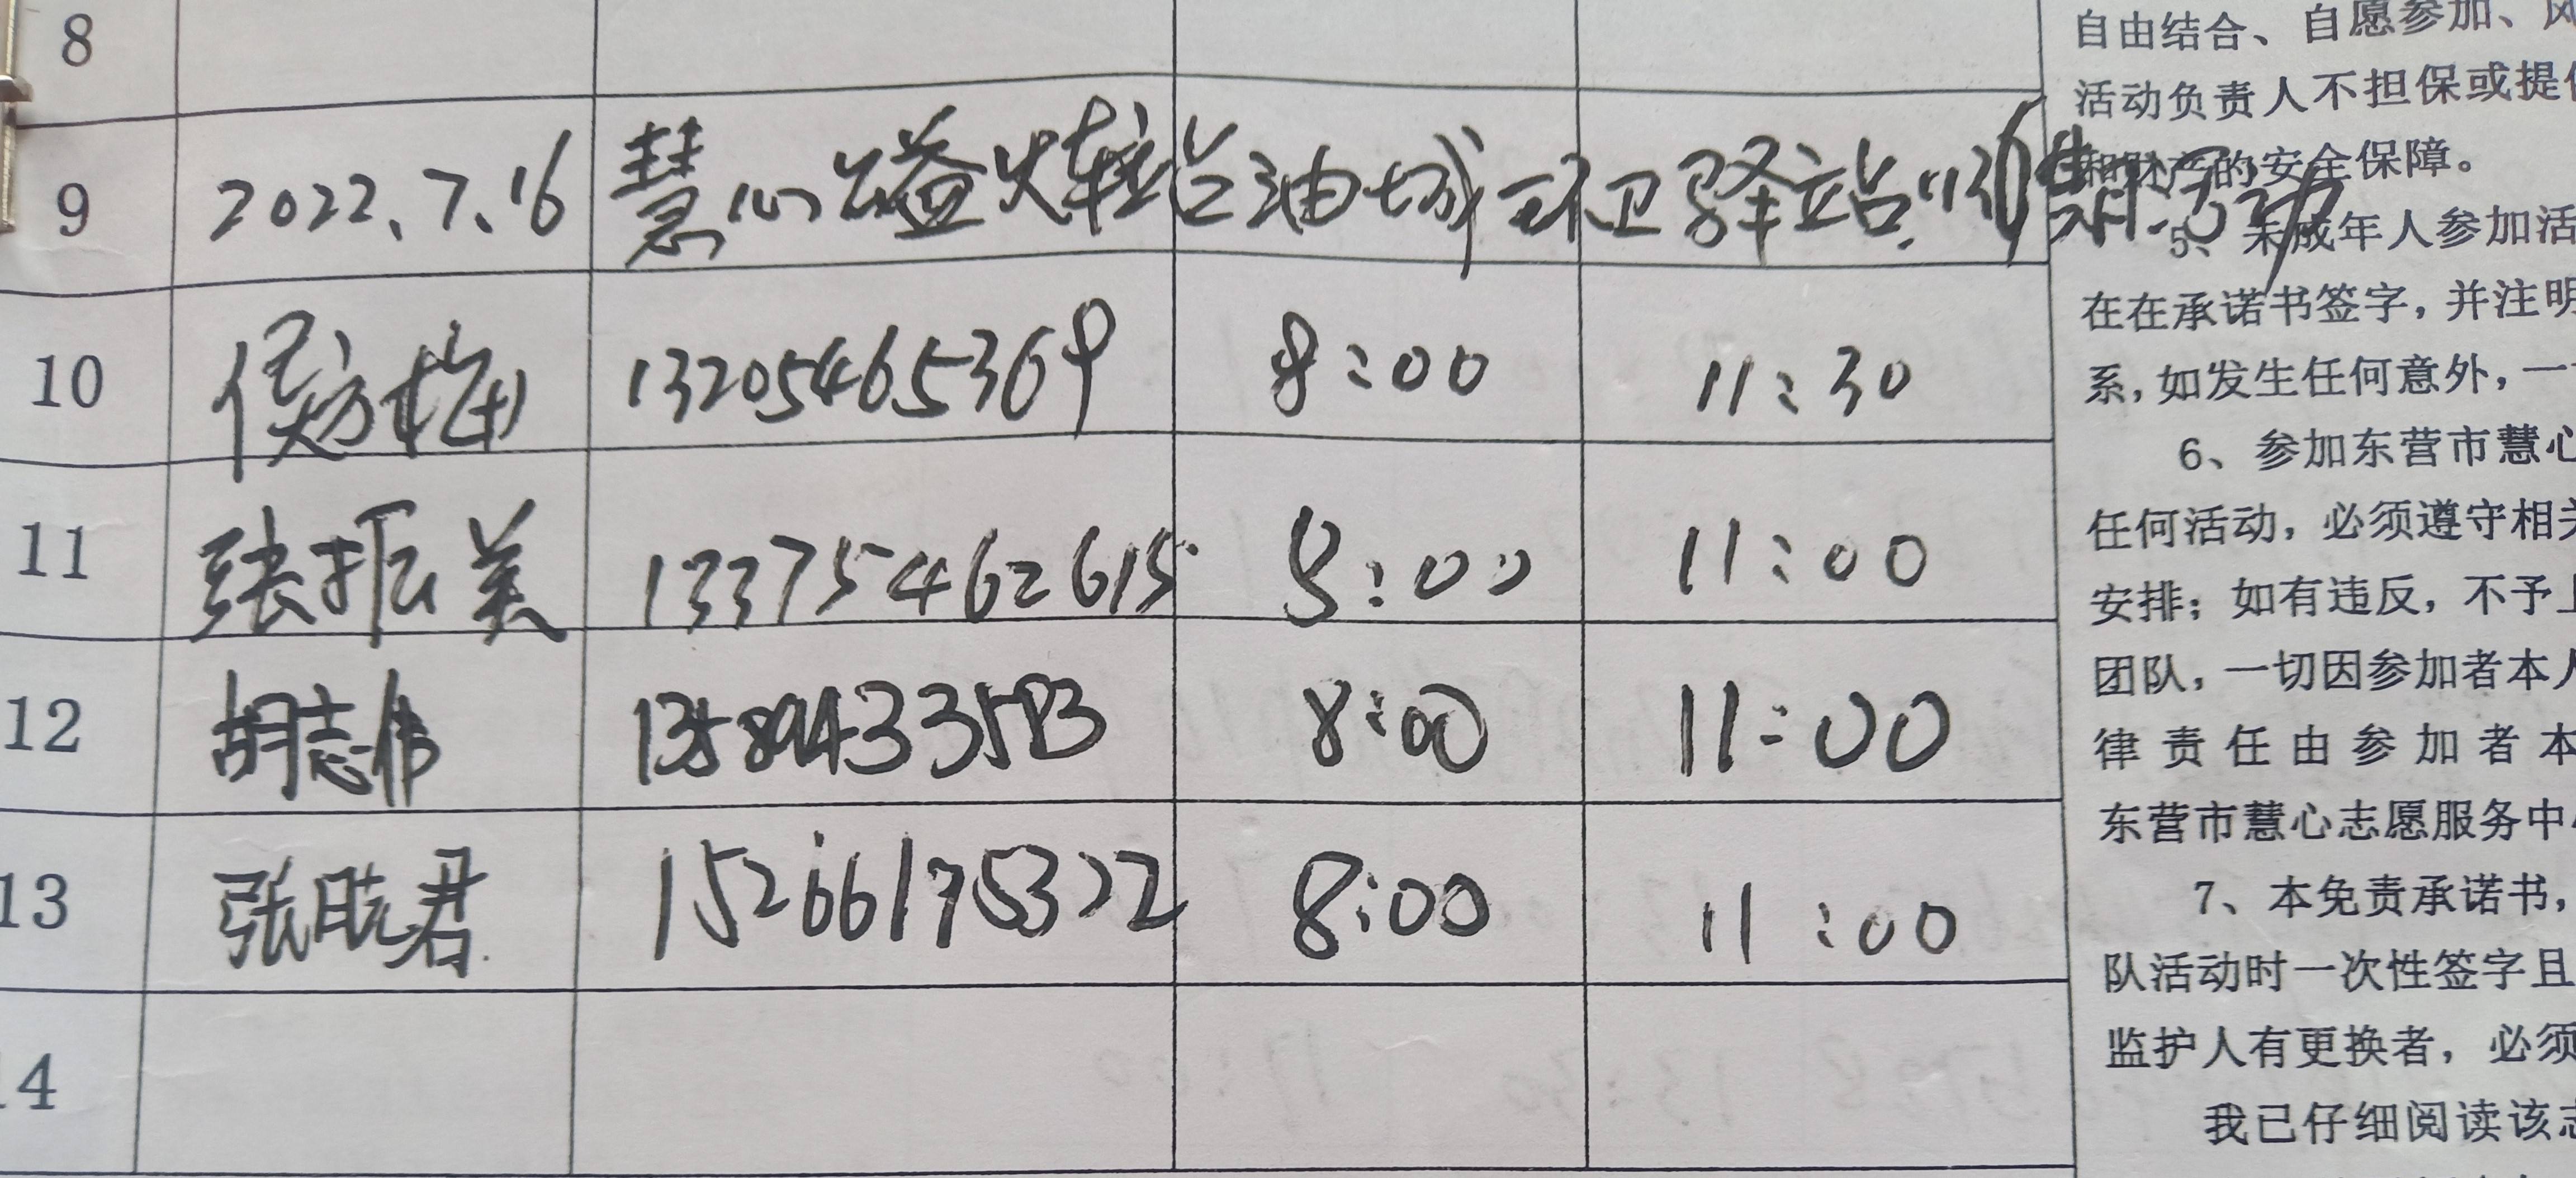 8
9 2022.7.16 慧心公益火车站油城环卫驿站 活动
10 侯方梅 13205465369 8:00 11:30
11 张振美 13375462615 8:00 11:00
12 胡志伟 13589433583 8:00 11:00
13 张晓君 15266175322 8:00 11:00
14
自由结合、自愿参加、风
活动负责人不担保或提供
和财产的安全保障。
5、未成年人参加活
在在承诺书签字，并注明
系，如发生任何意外，一
6、参加东营市慧心
任何活动，必须遵守相关
安排；如有违反，不予
团队，一切因参加者本人
律责任由参加者本
东营市慧心志愿服务中心
7、本免责承诺书，
队活动时一次性签字且
监护人有更换者，必须
我已仔细阅读该志